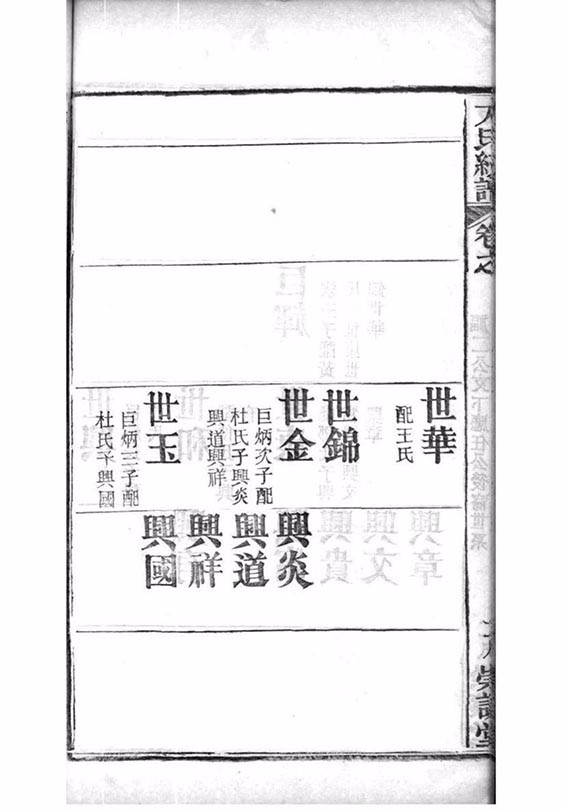 氏統譜 卷之
世華
配王氏
世錦
世金
巨炳次子配
杜氏子興炎
興道興祥
世玉
巨炳三子配
杜氏子興國
興炎
興道
興祥
興國